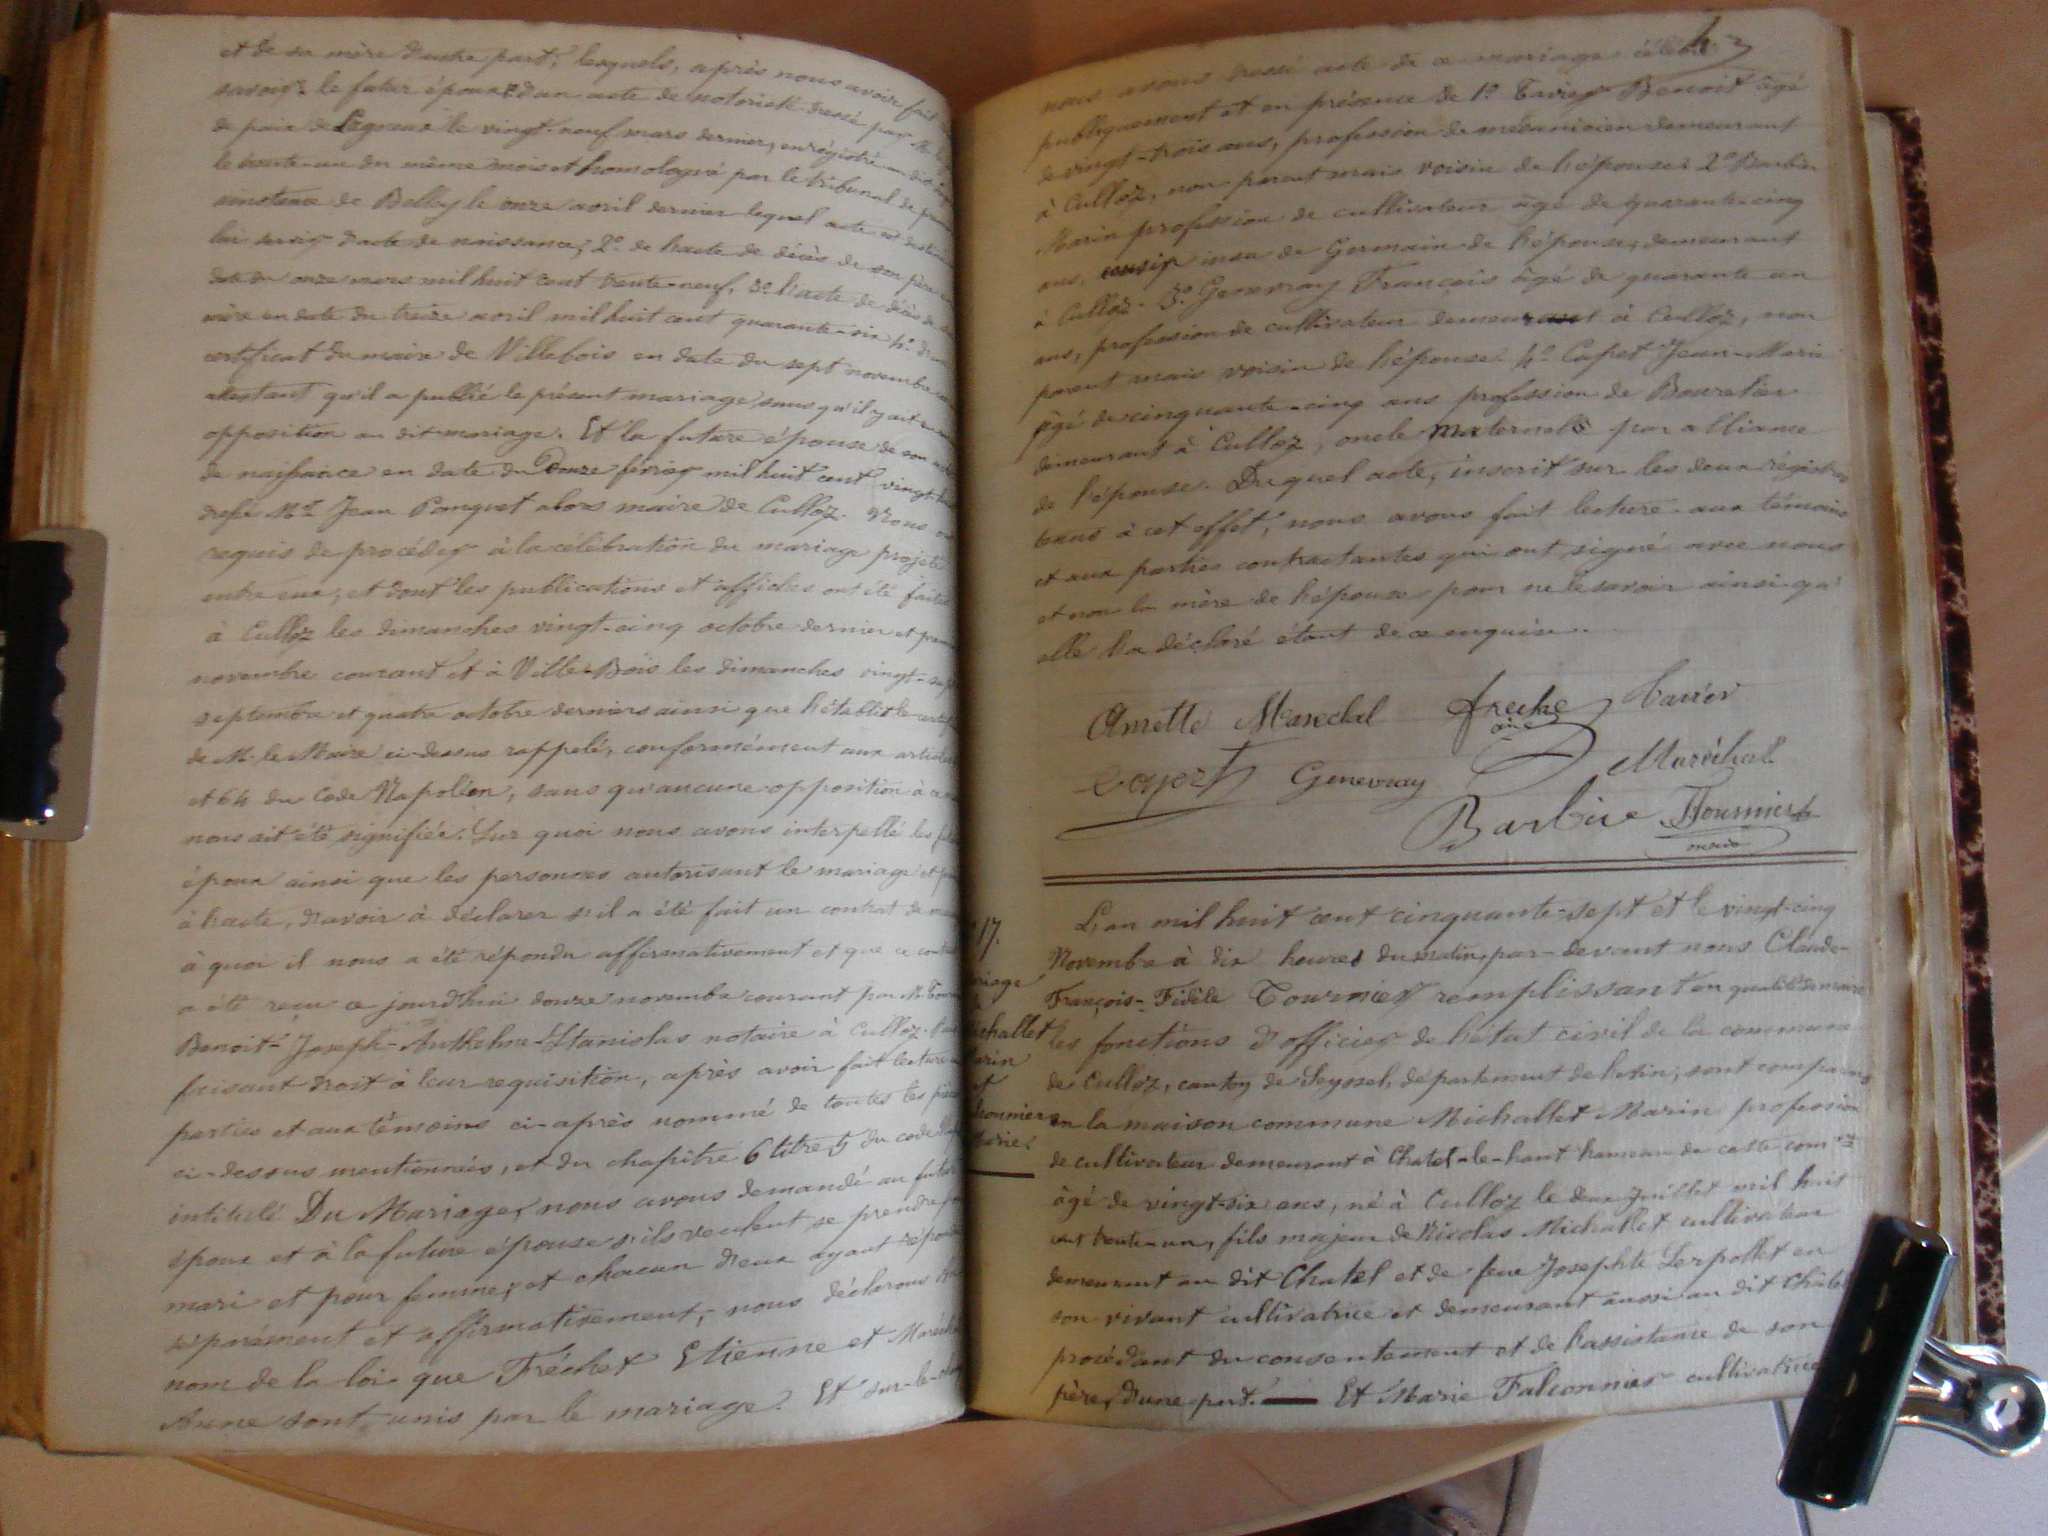 et de sa mère d'autre part; lesquels, après nous avoir fait
savoir: le futur époux d'un acte de notoriété dressé par Mr
de paix de Lagnieu le vingt-neuf mars dernier, enrégistré au dit
le trente-un du même mois et homologué par le tribunal de
instance de Belley le onze avril dernier lequel acte est destiné
lui servir d'acte de naissance; 2º de l'acte de décès de son père en
date du onze mars mil huit cent trente-neuf, 3º l'acte de décès de sa
mère en date du treize avril mil huit cent quarante-six 4º d'un
certificat du maire de Villebois en date du sept novembre
attestant qu'il a publié le présent mariage sans qu'il y ait eu
opposition au dit mariage. Et la future épouse de son acte
de naissance en date du douze février mil huit cent vingt
dressé Mr Jean Ponquet alors maire de Culloz. Nous ont
requis de procéder à la célébration du mariage projeté
entre eux, et dont les publications et affiches ont été faites
à Culloz les dimanches vingt-cinq octobre dernier et
novembre courant et à Ville-Bois les dimanches vingt-sept
septembre et quatre octobre derniers ainsi que l'établit le
de Mr le Maire ci-dessus rappelé, conformément aux articles
et 64 du Code Napoléon, sans qu'aucune opposition à ce
nous ait été signifiée. Sur quoi nous avons interpellé les
époux ainsi que les personnes autorisant le mariage et
à l'acte, d'avoir à déclarer s'il a été fait un contrat de
à quoi il nous a été répondu affirmativement et que ce contrat
a été reçu ce jourd'hui douze novembre courant par Mr
Benoit-Joseph-Anthelme-Stanislas notaire à Culloz.
faisant droit à leur requisition, après avoir fait lecture aux
parties et aux témoins ci-après nommé de toutes les pièces
ci-dessus mentionnées, et du chapitre 6 titre 5 du code
intitulé Du Mariage, nous avons demandé au futur
époux et à la future épouse s'ils veulent se prendre pour
mari et pour femme, et chacun d'eux ayant répondu
séparément et affirmativement, nous déclarons au
nom de la loi que Fréchet Etienne et Maréchal
Anne sont unis par le mariage. Et sur-le-champ
4
nous avons dressé acte de ce mariage célébré
publiquement et en présence de 1º Tavier Benoit âgé
de vingt-trois ans, profession de mécanicien demeurant
à Culloz, non parent mais voisin de l'épouse. 2º Barbier
Marin profession de cultivateur âgé de quarante-cinq
ans, cousin issu de Germain de l'épouse, demeurant
à Culloz. 3º Genevray François âgé de quarante un
ans, profession de cultivateur demeurant à Culloz, non
parent mais voisin de l'épouse. 4º Capet Jean-Marie
âgé de cinquante-cinq ans profession de Bourelier
demeurant à Culloz, oncle maternelle par alliance
de l'épouse. Duquel acte, inscrit sur les deux régistres
tenus à cet effet, nous avons fait lecture aux témoins
et aux parties contractantes qui ont signé avec nous
et non la mère de l'épouse pour ne le savoir ainsi qu'
elle l'a déclaré étant de ce enquise.
Anette Marechal Freche Tavier
ainé
Genevray Maréchal
Barbier Tournier
maire
17.
Michallet
Marin
et
L'an mil huit cent cinquante-sept et le vingt-cinq
Novembre à dix heures du matin, par-devant nous Claude-
François-Fidèle Tournier remplissant en qualité de maire
les fonctions d'officier de l'état civil de la commune
de Culloz, canton de Seyssel, département de l'Ain, sont comparus
en la maison commune Michallet Marin profession
de cultivateur demeurant à Chatel-le-haut hameau de cette comne
âgé de vingt-six ans, né à Culloz le deux Juillet mil huit
cent trente-un, fils majeur de Nicolas Michallet cultivateur
demeurant au dit Chatel et de feue Josephte Serpollet en
son vivant cultivatrice et demeurant aussi au dit Châtel
procédant du consentement et de l'assistance de son
père, d'une part. — Et Marie Falconnier cultivatrice